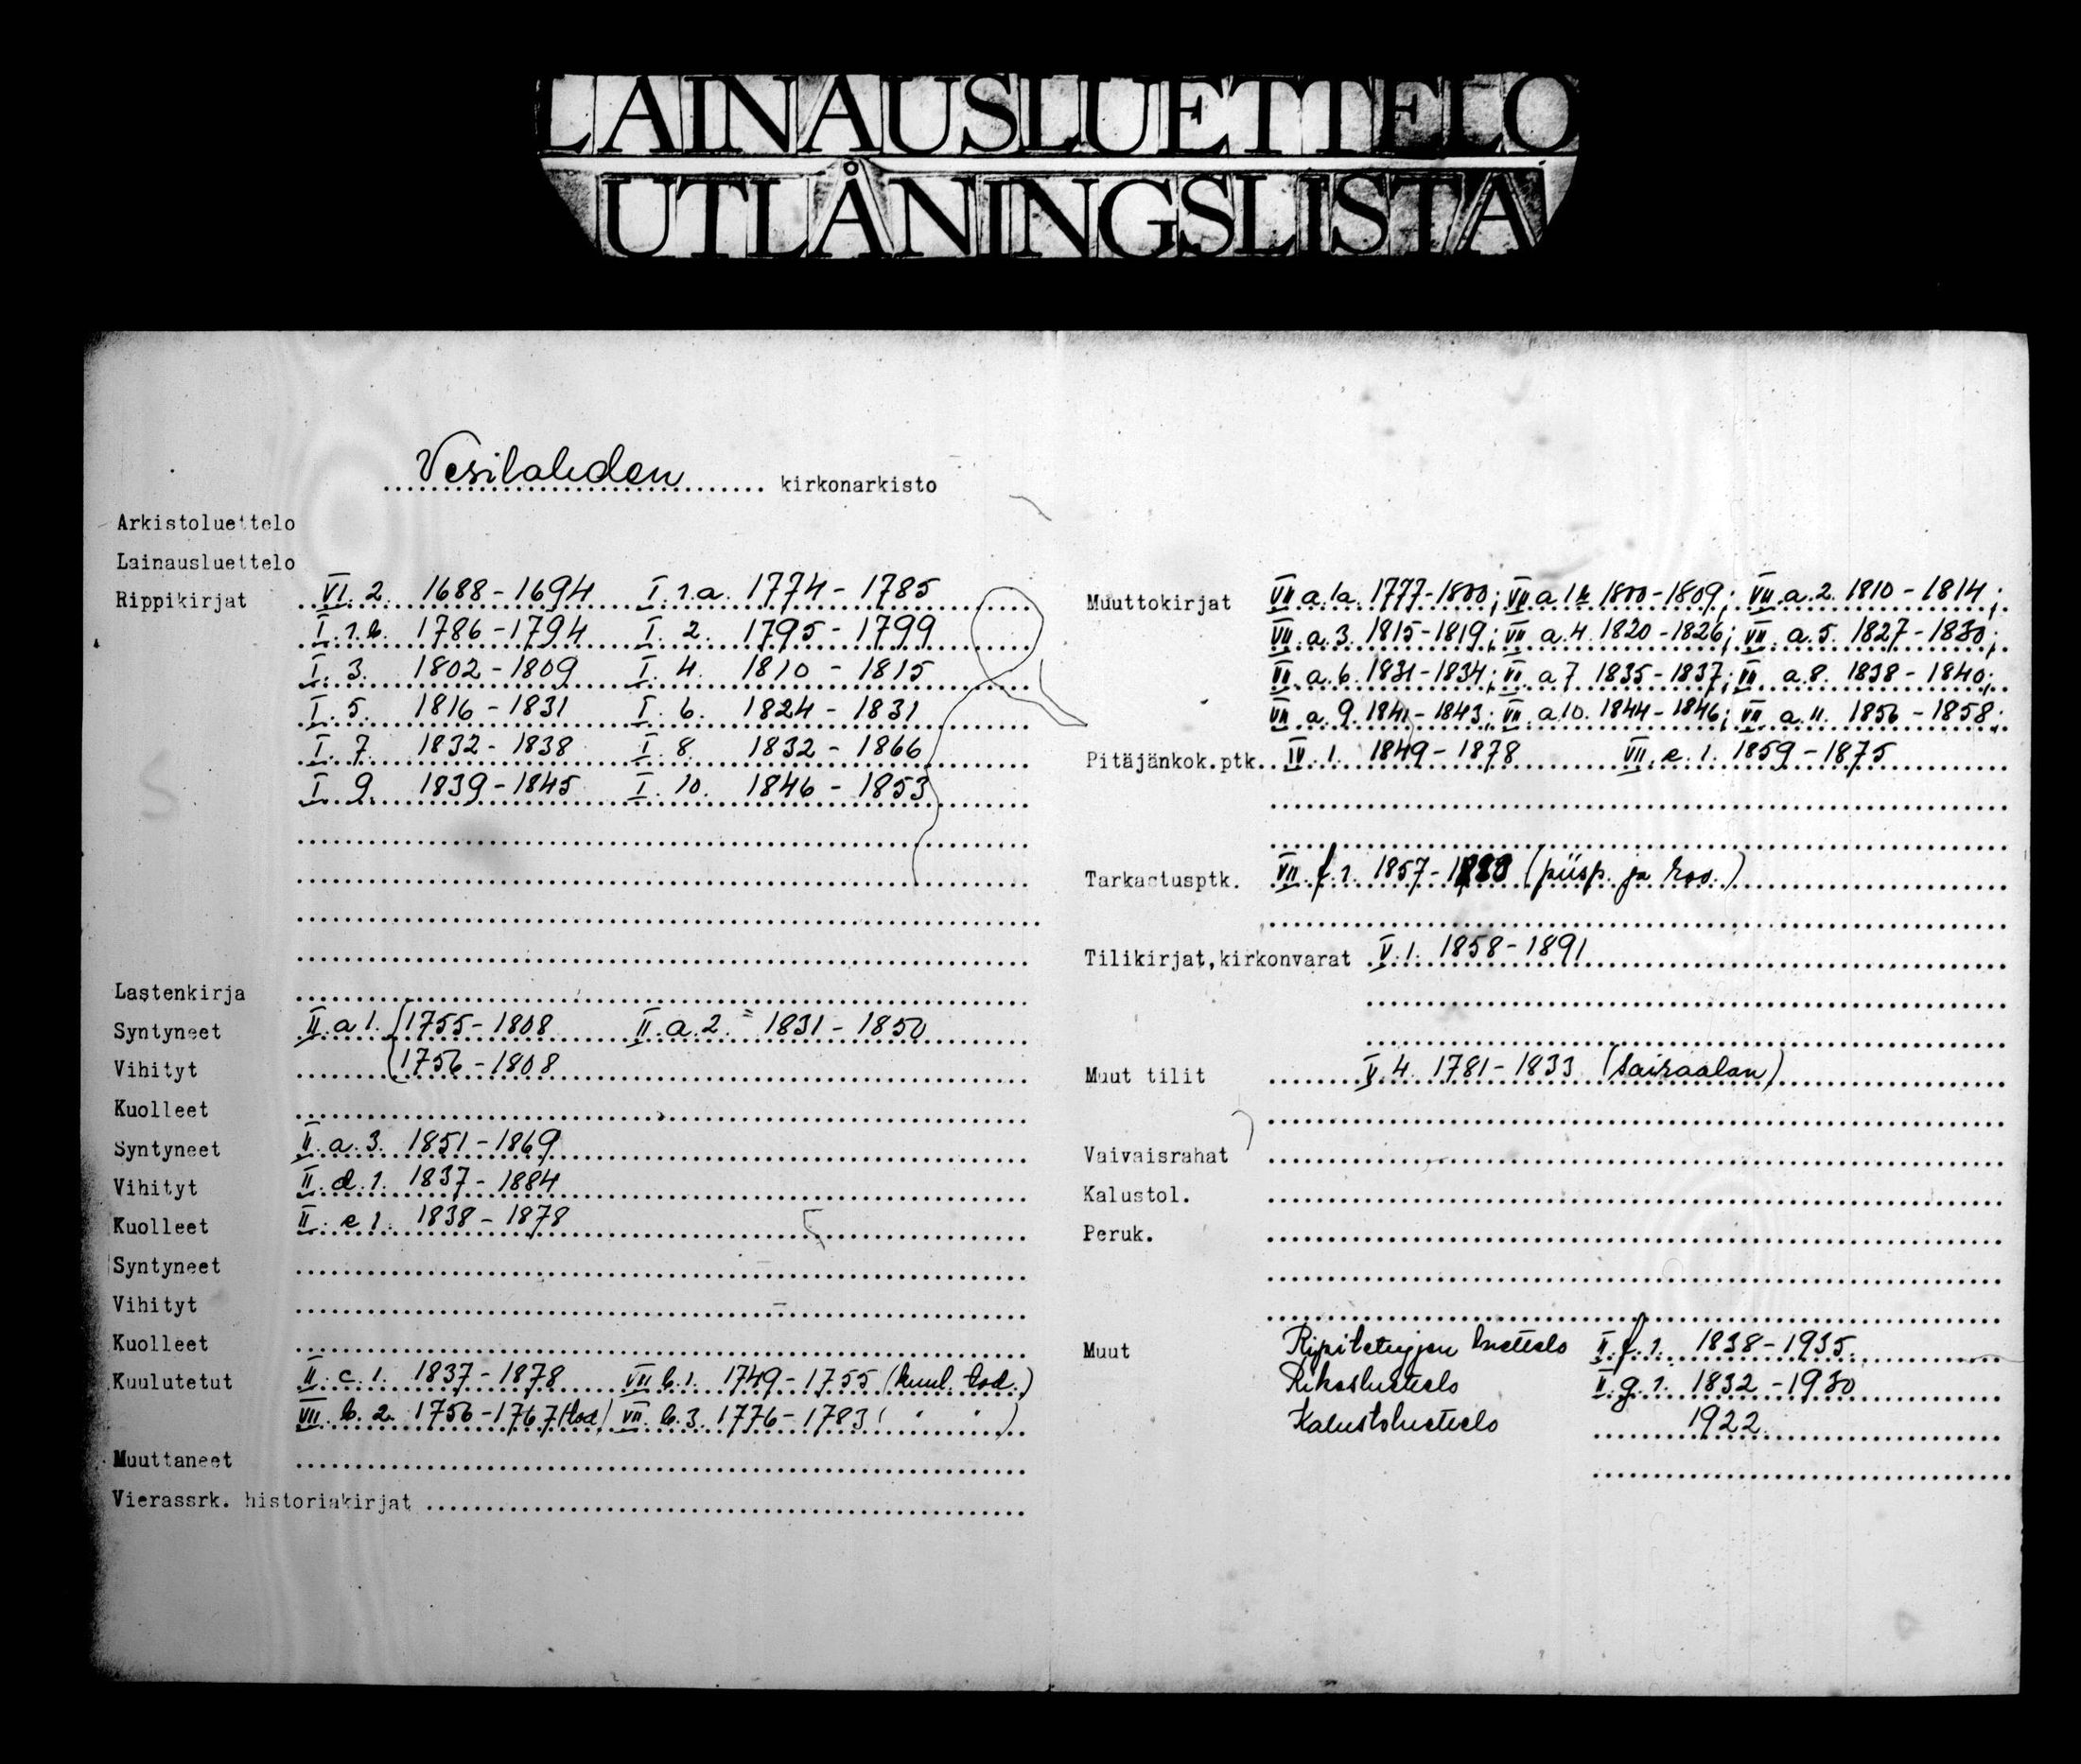 LAINAUSLUETTELO
UTLÅNINGSLISTA
Vesilahden kirkonarkisto
Arkistoluettelo
Lainausluettelo
Rippikirjat VI. 2. 1688-1694 I. 1.a. 1774-1785
I. 1.b. 1786-1794 I. 2. 1795-1799
I. 3. 1802-1809 I. 4. 1810-1815
I. 5. 1816-1831 I. 6. 1824-1831
I. 7. 1832-1838 I. 8. 1832-1866
I. 9. 1839-1845 I. 10. 1846-1853
Lastenkirja
Syntyneet II.a 1. 1755-1808 II.a.2. 1831-1850
Vihityt 1756-1808
Kuolleet
Syntyneet II.a.3. 1851-1869
Vihityt II.d.1. 1837-1884
Kuolleet II.e 1. 1838-1878
Syntyneet
Vihityt
Kuolleet
Kuulutetut II.c.1. 1837-1878 VII b.1. 1749-1755 (kuul. tod.)
VII.b.2. 1756-1767 (tod) VII.b.3. 1776-1783 ( " " )
Muuttaneet
Vierassrk. historiakirjat
Muuttokirjat VII a.1a. 1777-1800; VII a 1b 1800-1809; VII.a.2. 1810-1814;
VII.a.3. 1815-1819; VII a.4. 1820-1826; VII. a.5. 1827-1830;
VII.a.6. 1831-1834; VII. a 7 1835-1837; VII. a.8. 1838-1840;
VII a.9. 1841-1843; VII. a.10. 1844-1846; VII. a.11. 1856-1858;
Pitäjänkok.ptk. IV. 1. 1849-1878 VII.e.1. 1859-1875
Tarkastusptk. VII. f.1. 1857- (piisp. ja rov.)
Tilikirjat,kirkonvarat V.1. 1858-1891
Muut tilit V.4. 1781-1833 (Sairaalan)
Vaivaisrahat
Kalustol.
Peruk.
Muut luettelo II.f.1. 1838-1935.
Rikosluettelo II.g.1. 1832-1930
Kalustoluettelo 1922.